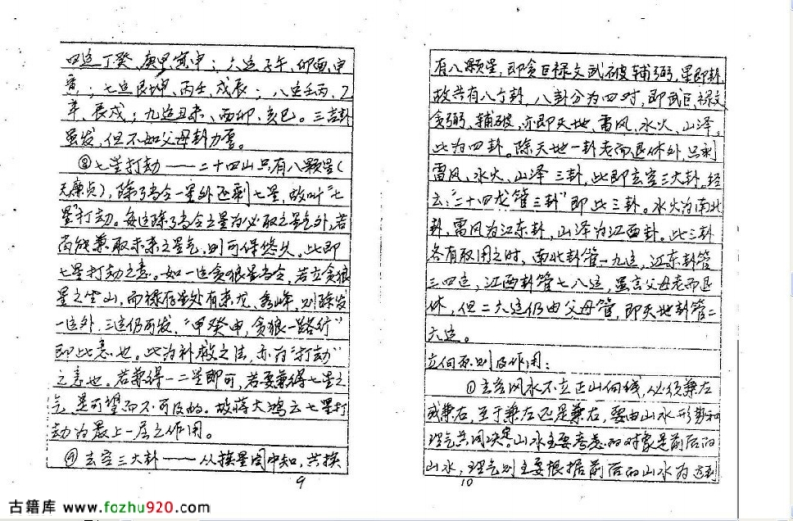 四运丁癸、庚甲寅申；六运子午、卯酉、申
；七运艮坤、丙壬、戌辰；八运壬丙、乙
辛、辰戌；九运丑未、酉卯、亥巳。三吉卦
虽发，但不如父母卦力厚。
⑧七星打劫——二十四山只有八颗星（
无廉贞），除了当令一星外还剩七星，故叫“七
星”打劫。每运除了当令之星为必取之星气外，若
而能兼取未来之星气，则可保悠久。此即
七星打劫之意。如一运贪狼星当令，若立贪狼
星之坐山，而禄存星处有来龙、秀峰，则除发
一运外，三运仍可发，“甲癸申，贪狼一路行”
即此意也。此为补救之法，亦有“打劫”
之意也。若兼得一二星即可，若要兼得七星之
气，是可望而不可及的。故蒋大鸿云七星打
劫为最上一层之作用。
⑨玄空三大卦——从挨星图中知，共挨
9
有八颗星，即贪巨禄文武破辅弼，星即卦
故共有八个卦，八卦分为四对，即武巨、禄文
贪弼、辅破，亦即天地、雷风、水火、山泽，
此为四卦。除天地一卦老而退休外，只剩
雷风、水火、山泽三卦，此即玄空三大卦，经
云：“二十四龙管三卦”即此三卦。水火为南北
卦，雷风为江东卦，山泽为江西卦。此三卦
各有取用之时，南北卦管一九运，江东卦管
三四运，江西卦管七八运，虽言父母老而退
休，但二六运仍由父母管，即天地卦管二
六运。
立向原则及作用：
①玄空风水不立正山向线，必须兼左
或兼右，至于兼左还是兼右，要由山水形势和
理气共同决定。山水主要考虑的对象是前后的
山水，理气则主要根据前后的山水为达到
10
古籍库 www.fozhu920.com